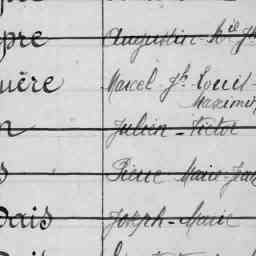 pre Augustin - Mie Jh
uère Marcel Jh Louis -
n Julien - Victor
s Pierre Marie - Jean
dais Joseph - Marie